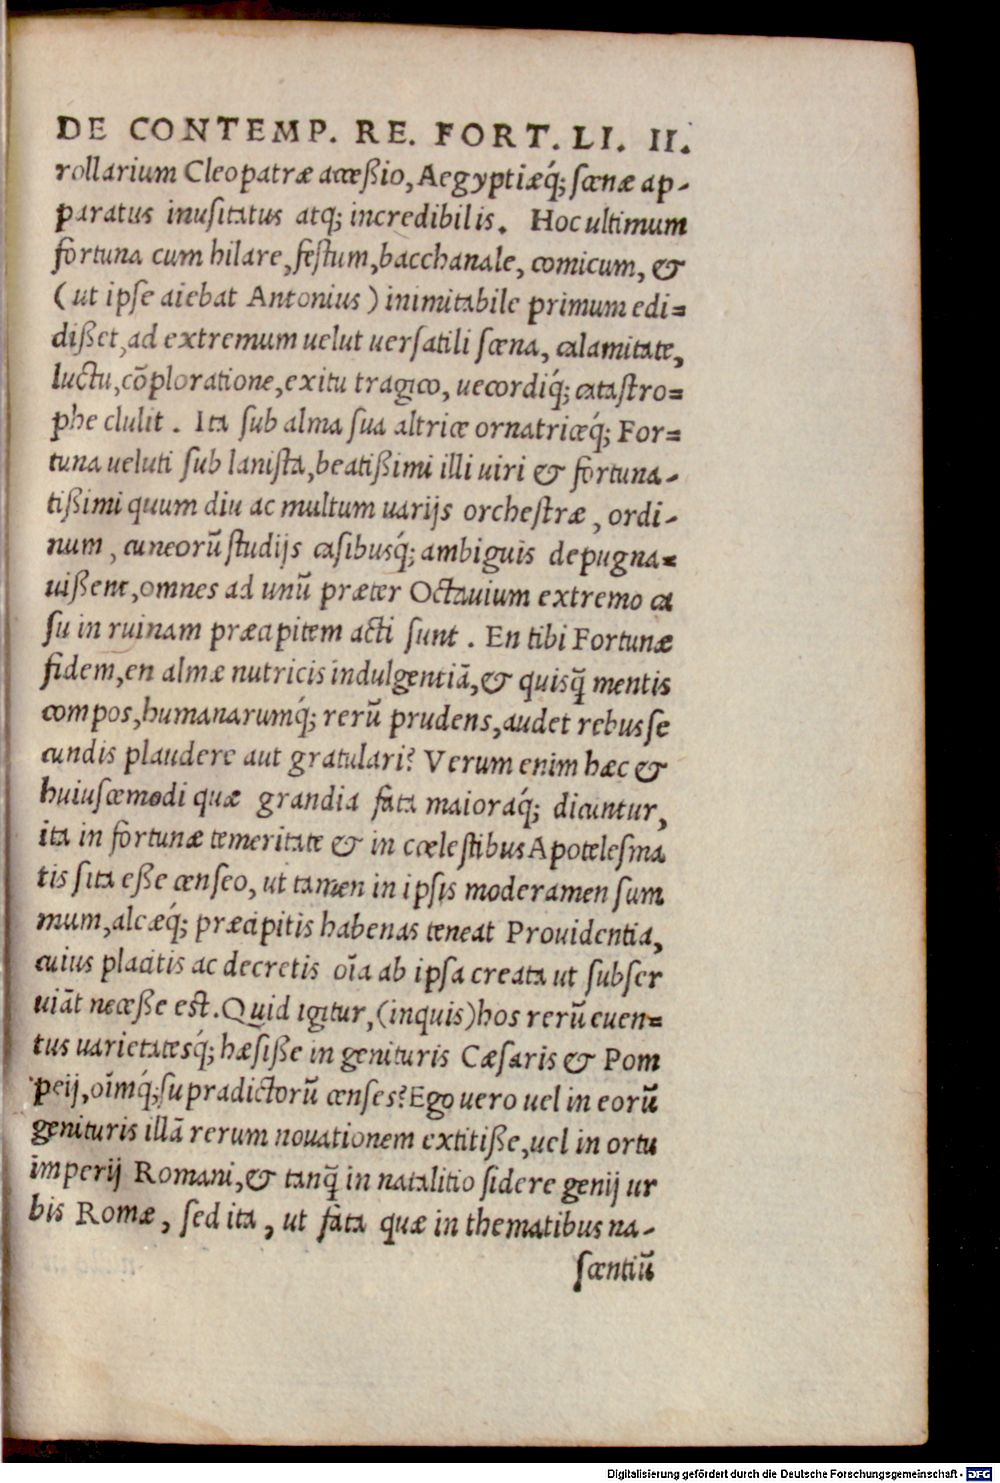 DE CONTEMP. RE. FORT. LI. II.
rollarium Cleopatræ acceßio, Aegyptiæq́; scenæ ap-
paratus inusitatus atq; incredibilis. Hoc ultimum
fortuna cum hilare, festum, bacchanale, comicum, &
(ut ipse aiebat Antonius) inimitabile primum edi=
dißet, ad extremum uelut uersatili scena, calamitate,
luctu, cōploratione, exitu tragico, uecordiq́; catastro=
phe clulit. Ita sub alma sua altrice ornatriceq́; For=
tuna ueluti sub lanista, beatißimi illi uiri & fortuna-
tißimi quum diu ac multum uarijs orchestræ, ordi-
num, cuneorū studijs casibusq́; ambiguis depugna=
uißent, omnes ad unū præter Octauium extremo ca
su in ruinam præcipitem acti sunt. En tibi Fortunæ
fidem, en almæ nutricis indulgentiā, & quisq̄ mentis
compos, humanarumq́; rerū prudens, audet rebus se
cundis plaudere aut gratulari? Verum enim hæc &
huiuscemodi quæ grandia fata maioraq́; dicuntur,
ita in fortunæ temeritate & in cœlestibus Apotelesma
tis sita eße censeo, ut tamen in ipsis moderamen sum
mum, aleæq́; præcipitis habenas teneat Prouidentia,
cuius placitis ac decretis oīa ab ipsa creata ut subser
uiāt neceße est. Quid igitur, (inquis) hos rerū euen=
tus uarietatesq́; hæsiße in genituris Cæsaris & Pom
peij, oīmq́; supradictorū censes? Ego uero uel in eorū
genituris illā rerum nouationem extitiße, uel in ortu
imperij Romani, & tanq̄ in natalitio sidere genij ur
bis Romæ, sed ita, ut fata quæ in thematibus na-
scentiū
Digitalisierung gefördert durch die Deutsche Forschungsgemeinschaft - DFG